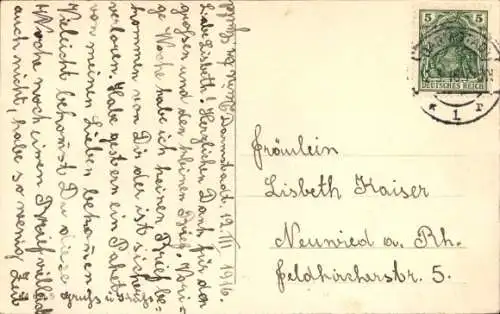 Darmstadt 12. III 1916.
Liebe Lisbeth! Herzlichen Dank für den
grossen und den kleinen Brief. Vori-
ge Woche habe ich keinen Brief be-
kommen von Dir der ist sicher
verloren. Habe gestern ein Paket
von meinen Lieben bekommen
Vieleicht bekomst Du diese
Woche noch einen Brief villeicht
auch nicht, habe so wenig Zeit
Gruss u. Kuss
5 5
DEUTSCHES REICH
* 1 r
Fräulein
Lisbeth Kaiser
Neuwied a. Rh.
Feldkircherstr. 5.